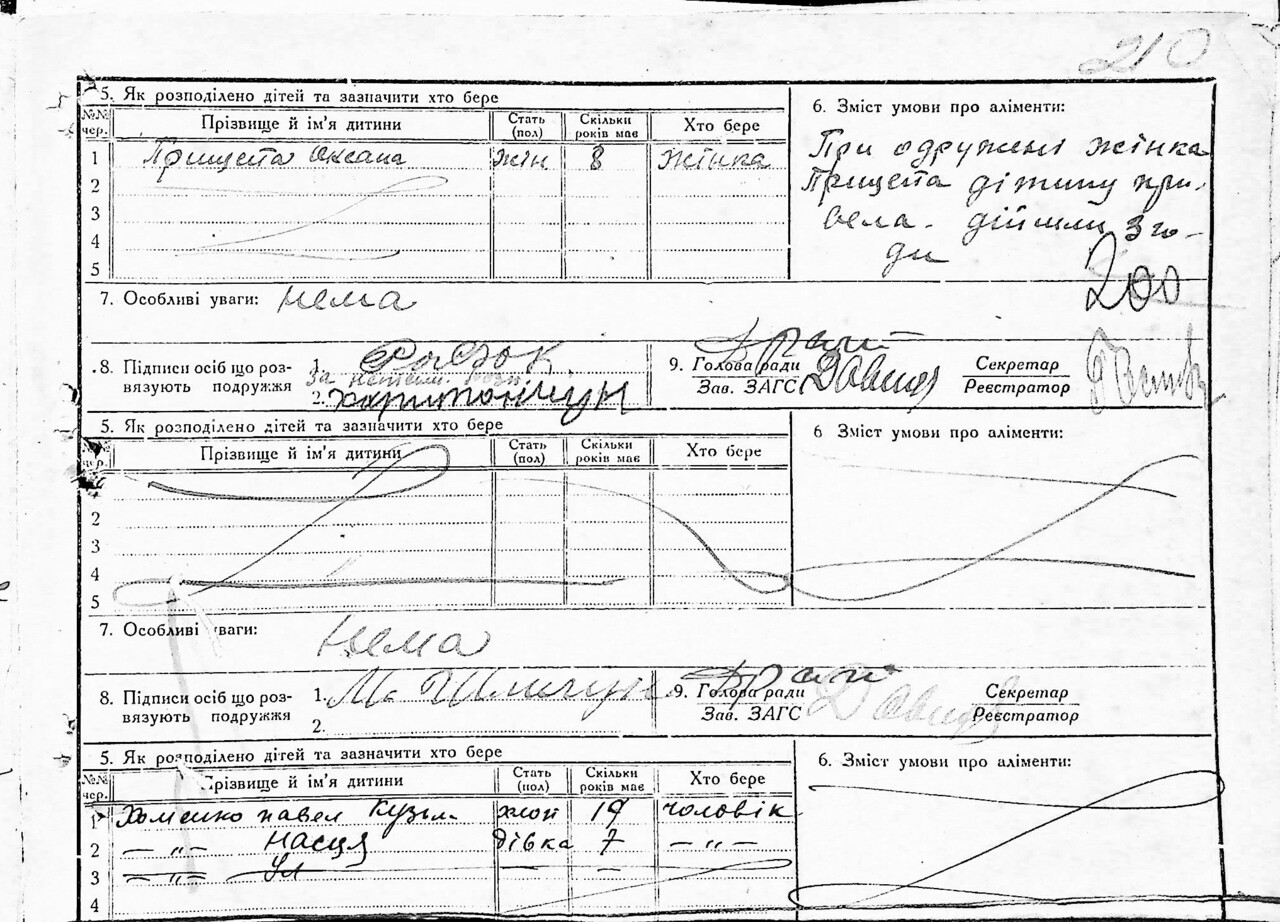 210
5. Як розподілено дітей та зазначити хто бере
№№ чер. Прізвище й ім'я дитини Стать (пол) Скільки років має Хто бере
1 Прищепа Оксана жін 8 жінка
2
3
4
5
6. Зміст умови про аліменти:
При одружені жінка
Прищепа дітину при-
вела. дійшли зго-
ди
200
7. Особливі уваги: нема
8. Підписи осіб що роз-
вязують подружжя
1.
За
2. Харитончук
9. Голова ради
Зав. ЗАГС
Секретар
Реєстратор
5. Як розподілено дітей та зазначити хто бере
Прізвище й ім'я дитини Стать (пол) Скільки років має Хто бере
2
3
4
5
6 Зміст умови про аліменти:
7. Особливі уваги: Нема
8. Підписи осіб що роз-
вязують подружжя
1. М.
2.
9. Голова ради
Зав. ЗАГС
Секретар
Реєстратор
5. Як розподілено дітей та зазначити хто бере
№№ чер. Прізвище й ім'я дитини Стать (пол) Скільки років має Хто бере
1 Хоменко павел Кузьм. хлоп 19 чоловік
2 — „ — насця дівка 7 — „ —
3 — „ —
4
6. Зміст умови про аліменти: